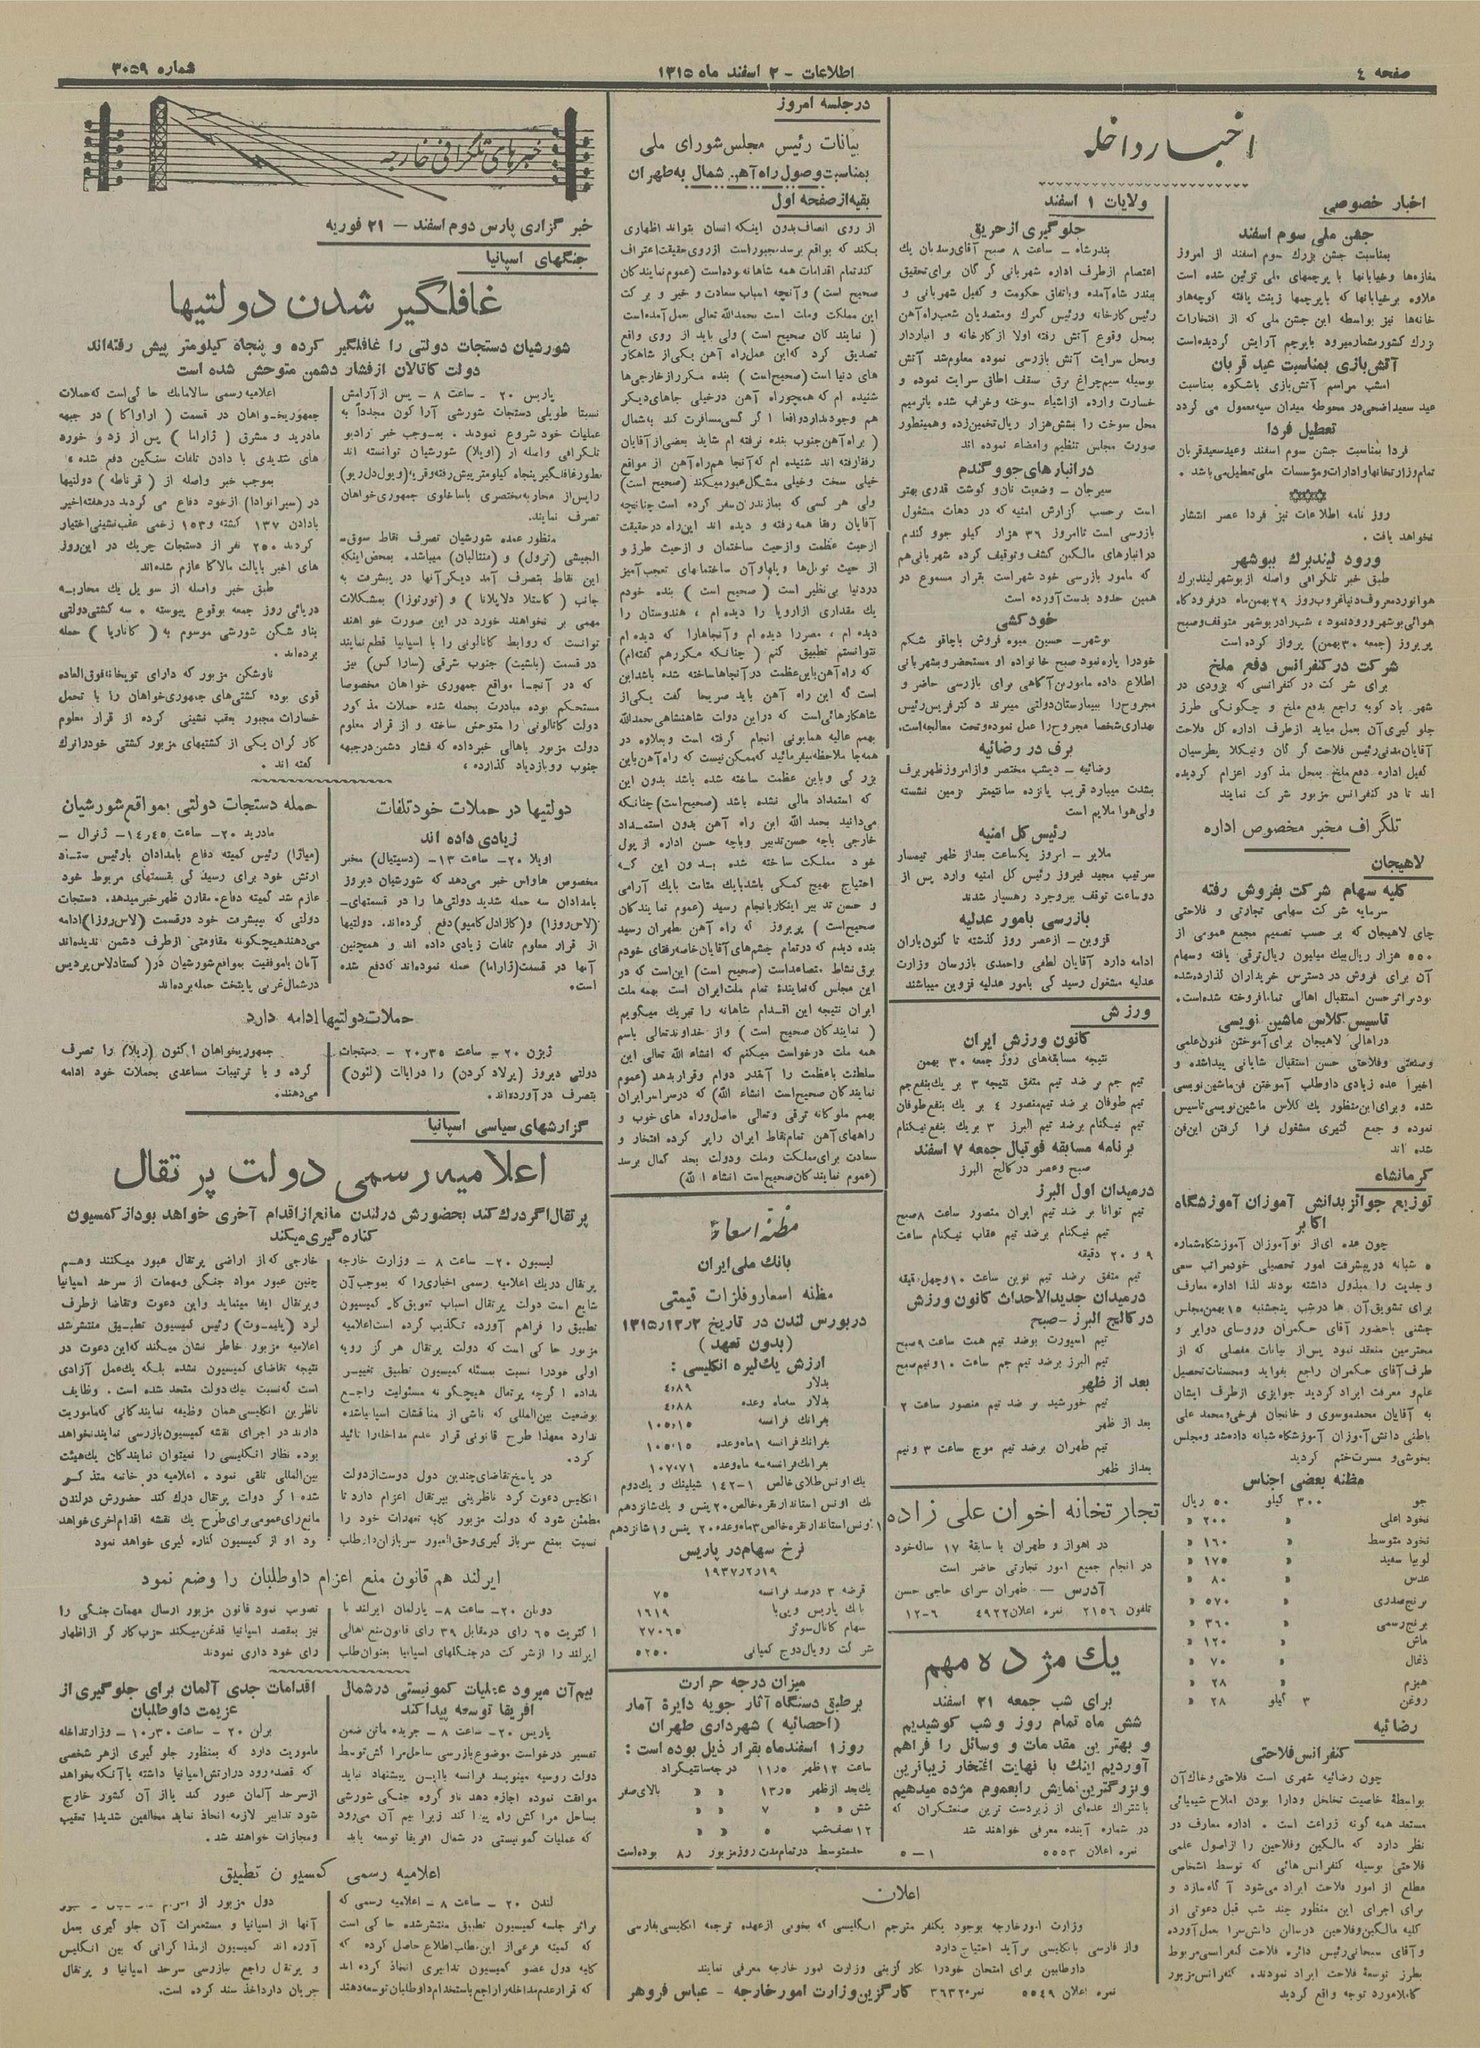 صفحه ٤
اطلاعات - ۲ اسفند ماه ۱۳۱۵
شماره ۳۰۵۹
اخبار داخله
اخبار خصوصی
جشن ملی سوم اسفند
بمناسبت جشن بزرك سوم اسفند از امروز
مغازه‌ها وخیابانها با پرچمهای ملی تزئین شده است
علاوه برخیابانها که باپرچمها زینت یافته کوچه‌ها و
خانه‌ها نیز بواسطه این جشن ملی که از افتخارات
بزرك کشور شمار میرود باپرچم آرایش گردیده‌است
آتش‌بازی بمناسبت عید قربان
امشب مراسم آتش‌بازی باشکوه بمناسبت
عید سعید اضحی در محوطه میدان سپه معمول می گردد
تعطیل فردا
فردا بمناسبت جشن سوم اسفند وعید سعید قربان
تمام وزارتخانها وادارات ومؤسسات ملی تعطیل می باشد .
روز نامه اطلاعات نیز فردا عصر انتشار
نخواهد یافت .
ورود لیندبرك ببوشهر
طبق خبر تلگرافی واصله از بوشهر لیندبرك
هوانورد معروف دنیا غروب روز ۲۹ بهمن‌ماه در فرودگاه
هوائی بوشهر ورود نمود، شب رادر بوشهر متوقف وصبح
پریروز (جمعه ۳۰ بهمن) پرواز کرده است
شرکت در کنفرانس دفع ملخ
برای شرکت در کنفرانسی که بزودی در
شهر بادکوبه راجع بدفع ملخ و چگونگی طرز
جلو گیری آن بعمل میاید ازطرف اداره کل فلاحت
آقایان مدنی رئیس فلاحت گرگان ونیکلا پطرسیان
کفیل اداره دفع ملخ بمحل مذکور اعزام گردیده
اند تا در کنفرانس مزبور شرکت نمایند
تلگراف مخبر مخصوص اداره
لاهیجان
کلیه سهام شرکت بفروش رفته
سرمایه شرکت سهامی تجارتی و فلاحتی
چای لاهیجان که بر حسب تصمیم مجمع عمومی از
۵۵۰ هزار ریال بیك میلیون ریال ترقی یافته وسهام
آن برای فروش در دسترس خریداران گذارده‌شده
بود براثر حسن استقبال اهالی تماما فروخته شده‌است.
تاسیس کلاس ماشین نویسی
دراهالی لاهیجان برای آموختن فنون علمی
وصنعتی وفلاحتی حسن استقبال شایانی پیدا شده و
اخیراً عده زیادی داوطلب آموختن فن‌ماشین‌نویسی
شده وبرای این منظور یك کلاس ماشین نویسی تاسیس
نموده و جمع کثیری مشغول فرا گرفتن این‌فن
شده اند
کرمانشاه
توزیع جوائز بدانش آموزان آموزشگاه
اکابر
چون عده ای‌از نوآموزان آموزشگاه شماره
۵ شبانه درپیشرفت امور تحصیلی خود مراتب سعی
و جدیت را مبذول داشته بودند لذا اداره معارف
برای تشویق آن ها درشب پنجشنبه ۱۵ بهمن مجلس
جشنی باحضور آقای حکمران وروسای دوایر و
محترمین منعقد نمود پس‌از بیانات مفصلی که از
طرف آقای حکمران راجع بفواید ومحسنات تحصیل
علم و معرفت ایراد گردید جوایزی ازطرف ایشان
به آقایان محمدموسوی و خانجان فرخی ومحمد علی
باطنی دانش آموزان آموزشگاه شبانه داده‌شد ومجلس
بخوشی و مسرت‌ختم گردید
مظنه بعضی اجناس
جو ۳۰۰ کیلو ۵۰ ریال
نخود اعلی » ۲۰۰ »
نخود متوسط » ۱۶۰ »
لوبیا سفید » ۱۷۵ »
عدس » ۸۰ »
برنج صدری » ۵۷۰ »
برنج رسمی » ۳۶۰ »
ماش » ۱۲۰ »
ذغال » ۷۰ »
هیزم » ۲۸ »
روغن ۳ کیلو ۲۸ »
رضائیه
کنفرانس فلاحتی
چون رضائیه شهری است فلاحتی وخاك آن
بواسطهٔ خاصیت تخلخل ودارا بودن املاح شیمیائی
مستعد همه گونه زراعت است . اداره معارف در
نظر دارد که مالکین وفلاحین را ازاصول علمی
فلاحتی بوسیله کنفرانس هائی که توسط اشخاص
مطلع از امور فلاحت ایراد می‌شود آگاه سازد و
برای اجرای این منظور چند شب قبل دعوتی از
کلیه مالکین وفلاحین درسالن دانش‌سرا بعمل آورده
وآقای سبحانی رئیس دائره فلاحت کنفرانسی مربوط
بطرز توسعهٔ فلاحت ایراد نمودند. کنفرانس مزبور
کاملا مورد توجه واقع گردید
ولایات ۱ اسفند
جلو گیری از حریق
بندرشاه - ساعت ۸ صبح آقای رسدبان یك
اعتصام ازطرف اداره شهربانی گرگان برای تحقیق
ببندر شاه آمده وباتفاق حکومت و کفیل شهربانی و
رئیس کارخانه ورئیس گمرك ومتصدیان شعب راه‌آهن
بمحل وقوع آتش رفته اولا از کارخانه و انباردار
ومحل سرایت آتش بازرسی نموده معلوم‌شد آتش
بوسیله سیم‌چراغ برق سقف اطاق سرایت نموده و
خسارت وارده ازاشیاء سوخته وخراب شده باترمیم
محل سوخت را بشش‌هزار ریال‌تخمین‌زده وهمینطور
صورت مجلس تنظیم وامضاء نموده اند
درانبار های جو و گندم
سیرجان - وضعیت نان و گوشت قدری بهتر
است برحسب گزارش امنیه که در دهات مشغول
بازرسی است تاامروز ۳۶ هزار کیلو جوو گندم
درانبارهای مالکین کشف وتوقیف کرده شهربانی هم
که مامور بازرسی خود شهر است بقرار مسموع در
همین حدود بدست آورده است
خودکشی
بوشهر- حسین میوه فروش باچاقو شکم
خودرا پاره نمود صبح خانواده او مستحضر وبشهربانی
اطلاع داده مامورین آگاهی برای بازرسی حاضر و
مجروح را ببیمارستان دولتی میبرند دکتر فریس رئیس
بهداری شخصا مجروح را عمل نموده وتحت معالجه‌است.
برف در رضائیه
رضائیه - دیشب مختصر وازامروز ظهر برف
بشدت میبارد قریب پانزده سانتیمتر بزمین نشسته
ولی هوا ملایم است
رئیس کل امنیه
ملایر - امروز یکساعت بعداز ظهر تیمسار
سرتیپ مجید فیروز رئیس کل امنیه وارد پس از
دوساعت توقف ببروجرد رهسپار شدند
بازرسی بامور عدلیه
قزوین - ازعصر روز گذشته تا کنون باران
ادامه دارد آقایان لطفی واحمدی بازرسان وزارت
عدلیه مشغول رسیدگی بامور عدلیه قزوین میباشند
ورزش
کانون ورزش ایران
نتیجه مسابقه‌های روز جمعه ۳۰ بهمن
تیم جم بر ضد تیم متفق نتیجه ۳ بر یك بنفع جم
تیم طوفان بر ضد تیم منصور ٤ بر یك بنفع طوفان
تیم نیکنام برضد تیم البرز ۳ بریك بنفع نیکنام
برنامه مسابقه فوتبال جمعه ۷ اسفند
صبح وعصر در کالج البرز
درمیدان اول البرز
تیم توانا بر ضد تیم ایران منصور ساعت ۸ صبح
تیم نیکنام برضد تیم عقاب نیکنام ساعت
۹ و ۲۰ دقیقه
تیم متفق برضد تیم نوین ساعت ۱۰ وچهل دقیقه
درمیدان جدیدالاحداث کانون ورزش
در کالج البرز - صبح
تیم اسپورت برضد تیم همت ساعت ۹ صبح
تیم البرز برضد تیم جم ساعت ۱۰ ونیم صبح
بعد از ظهر
تیم خورشید بر ضد تیم منصور ساعت ۲
بعد از ظهر
تیم طهران برضد تیم موج ساعت ۳ ونیم
بعداز ظهر
تجارتخانه اخوان علی زاده
در اهواز و طهران با سابقهٔ ۱۷ ساله خود
در انجام جمیع امور تجارتی حاضر است
آدرس — طهران سرای حاجی حسن
تلفون ۲۱۵۶ نمره اعلان ٤۹۲۲ ۶-۱۲
یك مژده مهم
برای شب جمعه ۲۱ اسفند
شش ماه تمام روز و شب کوشیدیم
و بهترین مقدمات و وسائل را فراهم
آوردیم اینك با نهایت افتخار زیباترین
وبزرگترین نمایش را بعموم مژده میدهیم
باشتراك عده‌ای از زبردست ترین صنعتگران که
در شماره آینده معرفی خواهند شد
نمره اعلان ۵۵۵۳ ۱-۵
درجلسه امروز
بیانات رئیس مجلس شورای ملی
بمناسبت وصول راه‌آهن شمال به طهران
بقیه از صفحه اول
از روی انصاف بدون اینکه انسان بتواند اظهاری
بکند که بواقع برسد مجبور است ازروی حقیقت اعتراف
کند تمام اقدامات همه شاهانه بوده‌است (عموم نمایندکان
صحیح است) وآنچه اسباب سعادت و خیر و برکت
این مملکت وملت است بحمدالله تعالی بعمل آمده‌است
( نمایندکان صحیح است ) ولی باید از روی واقع
تصدیق کرد که این عمل راه آهن یکی از شاهکار
های دنیا است (صحیح‌است ) بنده مکرر ازخارجی‌ها
شنیده ام که همچو راه آهن درخیلی جاهای دیگر
هم وجود ندارد واقعا اگر کسی مسافرت کند به‌شمال
( براه آهن جنوب بنده نرفته ام شاید بعضی از آقایان
رفقا رفته اند شنیده ام که آنجا هم راه‌آهن از مواقع
خیلی سخت وخیلی مشگل عبور میکند (صحیح است)
ولی هر کسی که بمازندران سفر کرده است چنانچه
آقایان رفقا همه رفته و دیده اند این راه درحقیقت
ازحیث عظمت وازحیث ساختمان و ازحیث طرز و
از حیث تونل‌ها وپلها وآن ساختمانهای تعجب‌آمیز
دردنیا بی‌نظیر است ( صحیح است ) بنده خودم
یك مقداری ازاروپا را دیده ام ، هندوستان را
دیده ام ، مصر را دیده ام وآنجاهارا که دیده ام
نتوانستم تطبیق کنم ( چنانکه مکررهم گفته‌ام)
که راه آهن باین عظمت در آنجاها ساخته شده باشد این
است که این راه آهن باید صریحا گفت یکی از
شاهکارهائی است که دراین دولت شاهنشاهی بحمدالله
بهمم عالیه همایونی انجام گرفته است وبعلاوه در
همه‌جا ملاحظه میفرمائید که ممکن نیست که راه آهن باین
بزرگی وباین عظمت ساخته شده باشد بدون این
که استمداد مالی نشده باشد (صحیح‌است) چنانکه
می‌دانید بحمد الله این راه آهن بدون استمداد
خارجی باچه حسن‌تدبیر وباچه حسن اداره از پول
خود مملکت ساخته شده بدون این که
احتیاج بهیچ کمکی باشد بایك متانت بایك آرامی
و حسن تدبیر اینکار بانجام رسید (عموم نمایندکان
صحیح‌است ) پریروز که راه آهن بطهران رسید
بنده دیدم که درتمام چشم‌های آقایان خاصه رفقای خودم
برق نشاط متصاعد است (صحیح است) این‌است که در
این مجلس که نمایندهٔ تمام ملت ایران است بهمه ملت
ایران نتیجه این اقدام شاهانه را تبریك میگویم
( نمایندکان صحیح است ) واز خداوند تعالی باسم
همه ملت درخواست میکنم که انشاء الله تعالی این
سلطنت باعظمت را آنقدر دوام وقرار بدهد (عموم
نمایندکان صحیح‌است انشاء الله) که درسراسر ایران
بهمم ملوکانه ترقی وتعالی حاصل وراه های خوب و
راههای آهن تمام نقاط ایران رابر کرده افتخار و
سعادت برای مملکت وملت ودولت بحد کمال برسد
(عموم نمایندکان صحیح‌است انشاء الله)
مظنّه اسعار
بانك ملی ایران
مظنه اسعار وفلزات قیمتی
دربورس لندن در تاریخ ۱۳۱۵/۱۲/۲
(بدون تعهد )
ارزش یك‌لیره انگلیسی :
بدلار ٤/۸۹
بدلار سه‌ماه وعده ٤/۸۸
بفرانك فرانسه ۱۰۵/۱۵
بفرانك فرانسه ۱ماه وعده ۱۰۵/۱۵
بفرانك فرانسه سه ماه وعده ۱۰۷/۷۱
یك اونس طلای خالص ۱-۱٤۲ شیلینك و یك‌دوم
یك اونس استاندار نقره خالص ۲۰ پنس و یك‌شانزدهم
۱ونس استاندار نقره خالص ۳ماه وعده ۲۰ پنس و۱ شانزدهم
نرخ سهام در پاریس
۱۹۳۷/۲/۱۹
قرضه ۳ درصد فرانسه ۷۵
بانك پاریس و پی‌با ۱۶۱۹
سهام کانال سوئز ۲۷۰۶۵
شرکت رویال‌دوچ کمپانی ۵۲۵۰
میزان درجه حرارت
برطبق دستگاه آثار جویه دایرهٔ آمار
(احصائیه ) شهرداری طهران
روز ۱ اسفندماه بقرار ذیل بوده است :
ساعت ۱۲ ظهر ۱۱/۵ درجه سانتیگراد
یك‌بعد ازظهر ۱۳/۵ » » بالای صفر
شش » » ۷ » »
۱۲ نصف‌شب ۵ » »
حدمتوسط درتمام‌مدت روزمزبور ۸/۵ بوده‌است
اعلان
وزارت امورخارجه بوجود یکنفر مترجم انگلیسی که بخوبی ازعهده ترجمه انگلیسی بفارسی
واز فارسی بانگلیسی برآید احتیاج دارد
داوطلبین برای امتحان خودرا بکارگزینی وزارت امور خارجه معرفی نمایند
نمره اعلان ۵۵٤۹ نمره ۳۶۳۲۰ کارگزین وزارت امورخارجه - عباس فروهر
خبرهای تلگرافی خارجه
خبر گزاری پارس دوم اسفند — ۲۱ فوریه
جنگهای اسپانیا
غافلگیر شدن دولتیها
شورشیان دستجات دولتی را غافلگیر کرده و پنجاه کیلومتر پیش رفته‌اند
دولت کاتالان ازفشار دشمن متوحش شده است
پاریس ۲۰ - ساعت ۸ - پس ازآرامش
نسبتا طویلی دستجات شورشی آراگون مجدداً به
عملیات خود شروع نمودند . بموجب خبر رادیو
تلگرافی واصله از (اویلا) شورشیان توانسته اند
بطور غافلگیر پنجاه کیلومتر پیش‌رفته وقریه (ویول‌دل‌ریو)
راپس‌از محاربه مختصری باساخلوی جمهوری‌خواهان
تصرف نمایند.
منظور عمده شورشیان تصرف نقاط سوق
الجیشی (ترول) و (منتالبان) میباشد. بمحض اینکه
این نقاط بتصرف آمد دیگر آنها در پیشرفت به
جانب ( کاستلا دلاپلانا ) و (تورتوزا) بمشکلات
مهمی بر نخواهند خورد در این صورت خواهند
توانست که روابط کاتالونی را با اسپانیا قطع نمایند
در قسمت (بلشیت) جنوب شرقی (ساراگس) نیز
که در آنجا مواقع جمهوری خواهان مخصوصا
مستحکم بوده مبادرت بحمله شده حملات مذکور
دولت کاتالونی را متوحش ساخته و از قرار معلوم
دولت مزبور باهالی خبر داده که فشار دشمن درجبهه
جنوب روبازدیاد گذارده ،
اعلامیه رسمی سالامانك حاکی‌است که‌حملات
جمهوریخواهان در قسمت ( اراواکا ) در جبهه
مادرید و مشرق ( ژاراما ) پس از زد و خورد
های شدیدی با دادن تلفات سنگین دفع شده ،
بموجب خبر واصله از ( قرناطه ) دولتیها
در (سیرانوادا) ازخود دفاع می گردید درهفته‌اخیر
بادادن ۱۳۷ کشته و ۱۵۳ زخمی عقب‌نشینی اختیار
کردند ۲۵۰ نفر از دستجات چریك در این‌روز
های اخیر بایالت مالاگا عازم شده‌اند
طبق خبر واصله از سویل یك محاربه
دریائی روز جمعه بوقوع پیوسته . سه کشتی‌دولتی
بناو شکن شورشی موسوم به ( کاناریا ) حمله
برده‌اند .
ناوشکن مزبور که دارای توپخانه‌فوق‌العاده
قوی بوده کشتی‌های جمهوری‌خواهان را با تحمل
خسارات مجبور بعقب نشینی کرده از قرار معلوم
کار گران یکی از کشتیهای مزبور کشتی خودراترك
گفته اند .
دولتیها در حملات خود تلفات
زیادی داده اند
اویلا ۲۰- ساعت ۱۳- (دسیتیال) مخبر
مخصوص هاواس خبر می‌دهد که شورشیان دیروز
بامدادان سه حمله شدید دولتی‌ها را در قسمتهای-
(لاس‌روزا) و (کازادل‌کامپو) دفع کرده‌اند. دولتیها
از قرار معلوم تلفات زیادی داده اند و همچنین
آنها در قسمت (ژاراما) حمله نموده‌اند که‌دفع شده
است.
حمله دستجات دولتی بمواقع شورشیان
مادرید ۲۰- ساعت ۱٤/٤۵- ژنرال -
(میاژا) رئیس کمیته دفاع بامدادان بارئیس ستاد
ارتش خود برای رسیدگی بقسمتهای مربوط خود
عازم شد کمیته دفاع- مقارن ظهر خبر میدهد. دستجات
دولتی که پیشرفت خود درقسمت (لاس‌روزا) ادامه
می‌دهند هیچگونه مقاومتی ازطرف دشمن ندیده‌اند
آنان باموفقیت بمواقع شورشیان در ( کستادلاس پردیس
درشمال غربی پایتخت حمله برده‌اند
حملات دولتیها ادامه دارد
ژیژن ۲۰- ساعت ۲۰/۳۵- دستجات
دولتی دیروز (پرلاد کردن) را درایالت (لئون)
بتصرف درآورده‌اند.
جمهوریخواهان اکنون (ریلا) را تصرف
کرده و با ترتیبات مساعدی بحملات خود ادامه
می‌دهند.
گزارشهای سیاسی اسپانیا
اعلامیه رسمی دولت پرتقال
پرتقال اگر درك کند بحضورش درلندن مانع ازاقدام آخری خواهد بود از کمسیون
کناره گیری میکند
لیسبون ۲۰- ساعت ۸ - وزارت خارجه
پرتقال دریك اعلامیه رسمی اخباری را که بموجب آن
شایع است دولت پرتقال اسباب تعویق کار کمیسیون
تطبیق را فراهم آورده تکذیب کرده است اعلامیه
مزبور حاکی است که دولت پرتقال هرگز رویه
اولی خود را نسبت بمسئله کمیسیون تطبیق تغییر
نداده اگرچه پرتقال هیچگونه مسئولیت راجع
بوضعیت بین‌المللی که ناشی از مناقشات اسپانیا شده
ندارد معهذا طرح قانونی قرار عدم مداخله را تائید
کرد.
در پاسخ تقاضای چندین دول دوست ازدولت
انگلیس دعوت کرد ناظرینی بپرتقال اعزام دارد تا
مطمئن شود که دولت مزبور کلیه تعهدات خود را
نسبت بمنع سرباز گیری وحق العبور سربازان داوطلب
خارجی که از اراضی پرتقال عبور میکنند وهم
چنین عبور مواد جنگی ومهمات از سرحد اسپانیا
وپرتقال ایفا مینماید واین دعوت وتقاضا ازطرف
لرد (پلیموت) رئیس کمیسیون تطبیق منتشر شد
اعلامیه مزبور خاطر نشان میکند که این دعوت در
نتیجه تقاضای کمیسیون نشده بلکه یك‌عمل آزادی
است که نسبت بیك دولت متحد شده است . وظایف
ناظرین انگلیسی همان وظیفه نمایندگانی که ماموریت
دارند در اجرای نقشه کمیسیون بازرسی نمایند نخواهد
بود. نظار انگلیسی را نمیتوان نمایندگان یك هیئت
بین‌المللی تلقی نمود . اعلامیه در خاتمه متذکر
شده اگر دولت پرتقال درك کند حضورش درلندن
مانع رای عمومی برای طرح یك نقشه اقدام اخری خواهد
بود او از کمیسیون کناره گیری خواهد نمود
ایرلند هم قانون منع اعزام داوطلبان را وضع نمود
دوبلن ۲۰- ساعت ۸- پارلمان ایرلند با
اکثریت ۶۵ رای درمقابل ۳۹ رای قانون منع اهالی
ایرلند را ازشرکت درجنگهای اسپانیا بعنوان داوطلب
تصویب نمود قانون مزبور ارسال مهمات جنگی را
نیز بمقصد اسپانیا قدغن میکند حزب کارگر از اظهار
رای خود داری نمودند
بیم آن میرود عملیات کمونیستی درشمال
افریقا توسعه پیدا کند
پاریس ۲۰ - ساعت ۸ - جریده ماتن ضمن
تفسیر درخواست موضوع بازرسی ساحل مراکش توسط
دولت روسیه مینویسد فرانسه بااین پیشنهاد نباید
موافقت نموده اجازه دهد ناو گروه جنگی شوروی
بساحل مراکش راه پیدا کند زیرا بیم آن می‌رود
که عملیات کمونیستی در شمال افریقا توسعه یابد
اقدامات جدی آلمان برای جلوگیری از
عزیمت داوطلبان
برلن ۲۰ - ساعت ۱۰/۳۰ - وزارتداخله
ماموریت دارد که بمنظور جلو گیری ازهر شخصی
که قصد ورود درارتش اسپانیا داشته یاآنکه بخواهد
ازسرحد آلمان عبور کند یااز آن کشور خارج
شود تدابیر لازمه اتخاذ نماید مخالفین شدیدا تعقیب
ومجازات خواهند شد .
اعلامیه رسمی کمسیون تطبیق
لندن ۲۰ - ساعت ۸ - اعلامیه رسمی که
براثر جلسه کمیسیون تطبیق منتشر شده حاکی است
که کمیته فرعی از این مطلب اطلاع حاصل کرده که
کلیه دول عضو کمیسیون تدابیری اتخاذ کرده اند
که قرار عدم مداخله را راجع باستخدام داوطلبان توسعه دهند
دول مزبور از
آنها از اسپانیا و مستعمرات آن جلو گیری بعمل
آورده اند کمیسیون ازمذاکراتی که بین انگلیس
و پرتقال راجع ببازرسی سرحد اسپانیا و پرتقال
جریان دارد اخذ سند کرده است.